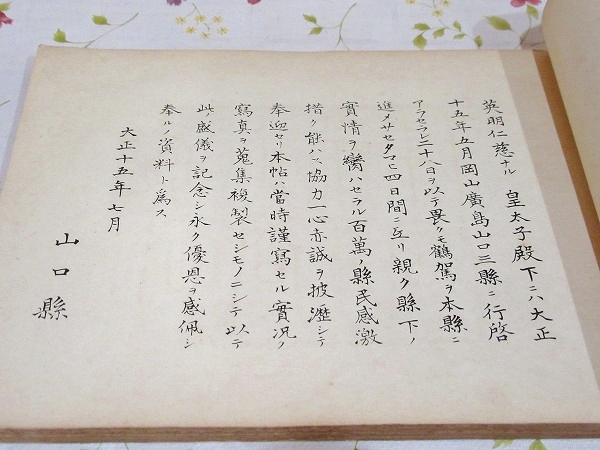 英明仁慈ナル　皇太子殿下ニハ大正
十五年五月岡山廣島山口三縣ニ行啓
アラセラレ二十八日ヲ以テ畏クモ鶴駕ヲ本縣ニ
進メサセタマヒ四日間ニ亙リ親ク縣下ノ
實情ヲ臠ハセラル百萬ノ縣民感激
措ク能ハス協力一心赤誠ヲ披瀝シテ
奉迎セリ本帖ハ當時謹寫セル實況ノ
寫真ヲ蒐集複製セシモノニシテ以テ
此ノ盛儀ヲ記念シ永ク優恩ヲ感佩シ
奉ルノ資料ト為ス
大正十五年七月
山口縣